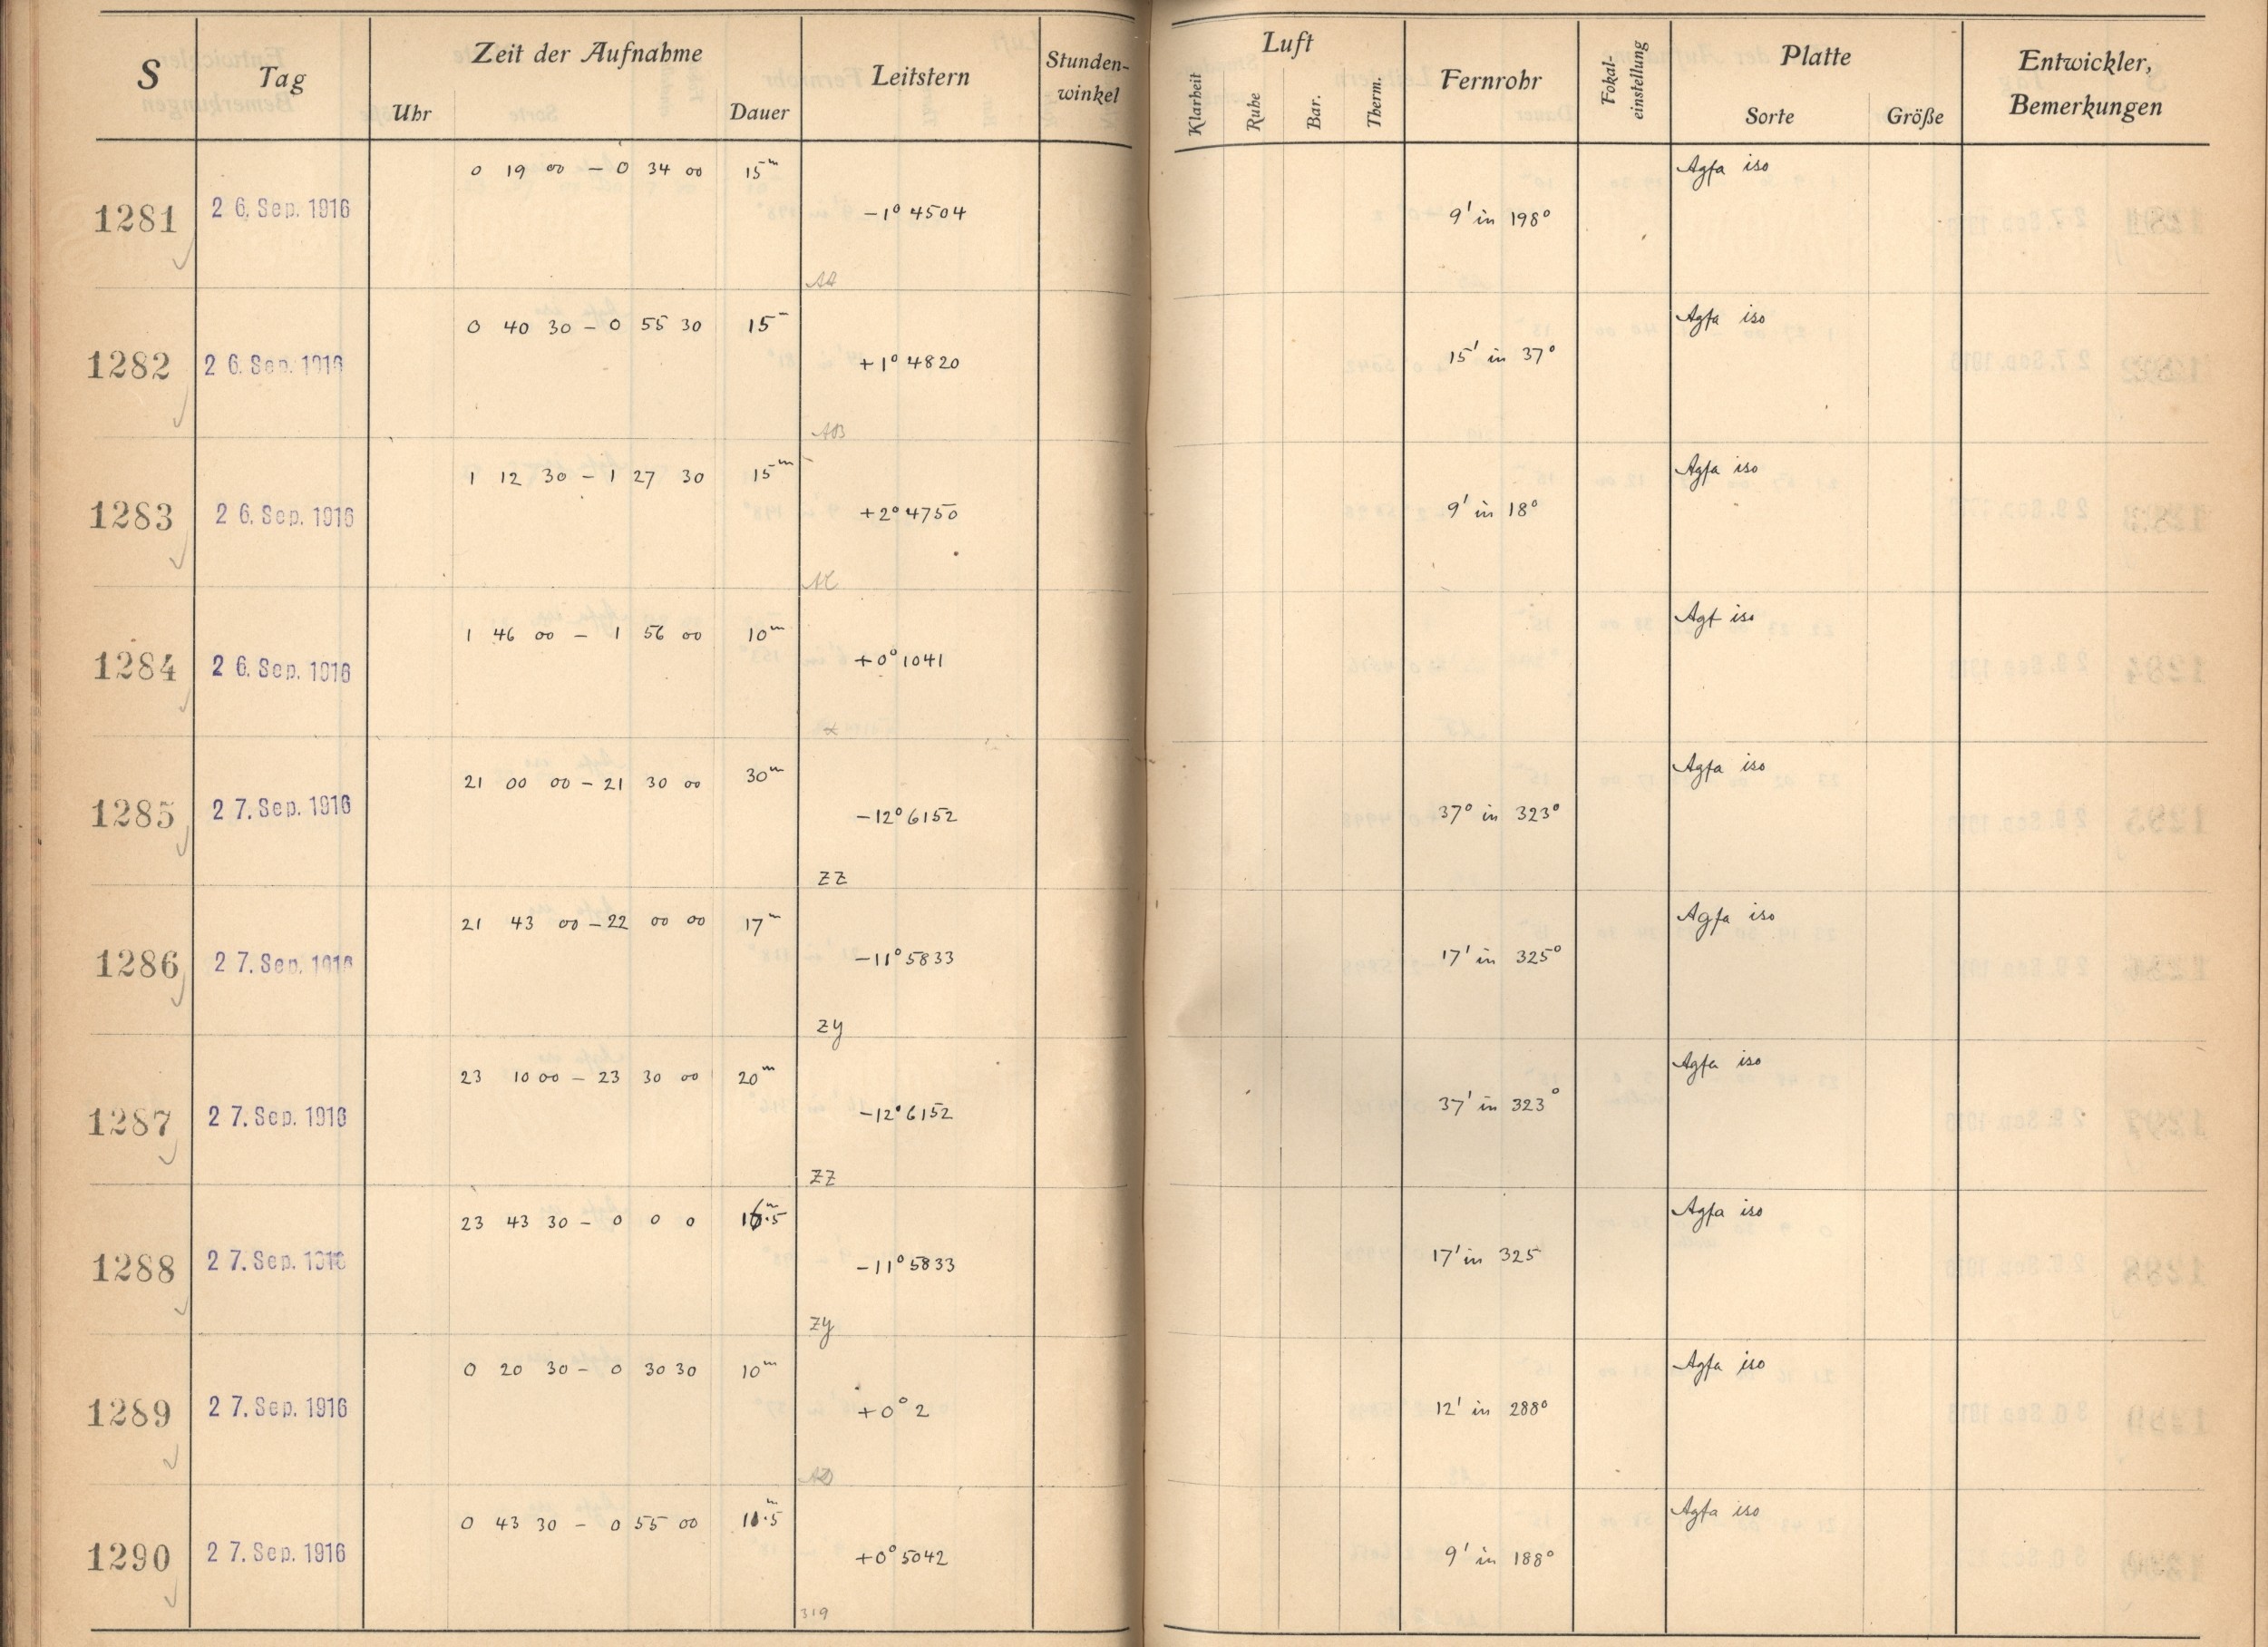 S Tag Zeit der Aufnahme Leitstern Stunden-winkel Luft Fernrohr Fokal-einstellung Platte Entwickler, Bemerkungen
Uhr Dauer Klarheit Ruhe Bar. Therm. Sorte Größe
0 19 00 – 0 34 00 15m Agfa iso
1281 26. Sep. 1916 –1° 4504 9' in 198°
AA
0 40 30 – 0 55 30 15m Agfa iso
1282 26. Sep. 1916 +1° 4820 15' in 37°
AB
1 12 30 – 1 27 30 15m Agfa iso
1283 26. Sep. 1916 +2° 4750 9' in 18°
AC
1 46 00 – 1 56 00 10m Agf iso
1284 26. Sep. 1916 +0° 1041
21 00 00 – 21 30 00 30m Agfa iso
1285 27. Sep. 1916 –12° 6152 37° in 323°
ZZ
21 43 00 – 22 00 00 17m Agfa iso
1286 27. Sep. 1916 –11° 5833 17' in 325°
Zy
23 10 00 – 23 30 00 20m Agfa iso
1287 27. Sep. 1916 –12° 6152 37' in 323°
ZZ
23 43 30 – 0 0 0 16m.5 Agfa iso
1288 27. Sep. 1916 –11° 5833 17' in 325
Zy
0 20 30 – 0 30 30 10m Agfa iso
1289 27. Sep. 1916 +0° 2 12' in 288°
AD
0 43 30 – 0 55 00 11m.5 Agfa iso
1290 27. Sep. 1916 +0° 5042 9' in 188°
319